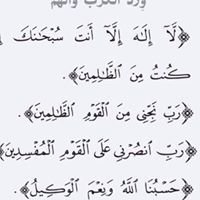 ورد الكرب والهم
﴿لَّآ إِلَٰهَ إِلَّآ أَنتَ سُبْحَٰنَكَ إِ
كُنتُ مِنَ ٱلظَّٰلِمِينَ﴾.
﴿رَبِّ نَجِّنِي مِنَ ٱلْقَوْمِ ٱلظَّٰلِمِينَ﴾.
﴿رَبِّ ٱنصُرْنِي عَلَى ٱلْقَوْمِ ٱلْمُفْسِدِينَ﴾
﴿حَسْبُنَا ٱللَّهُ وَنِعْمَ ٱلْوَكِيلُ﴾.